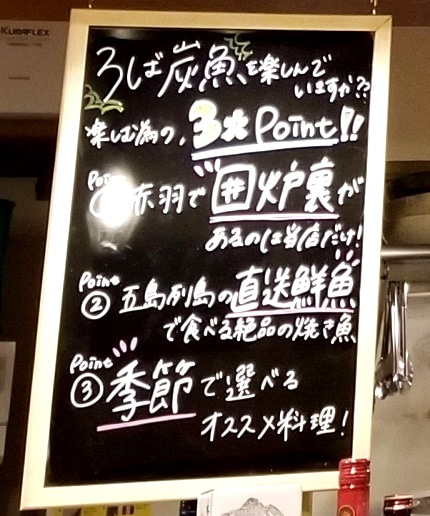 KUMAFLEX
ろばた炭魚を楽しんで
いますか??
楽しむ為の、3大Point!!
Point
赤羽で囲炉裏が
あるのは当店だけ!
Point
② 五島列島の直送鮮魚
で食べる絶品の焼き魚
Point
③ 季節で選べる
オススメ料理!